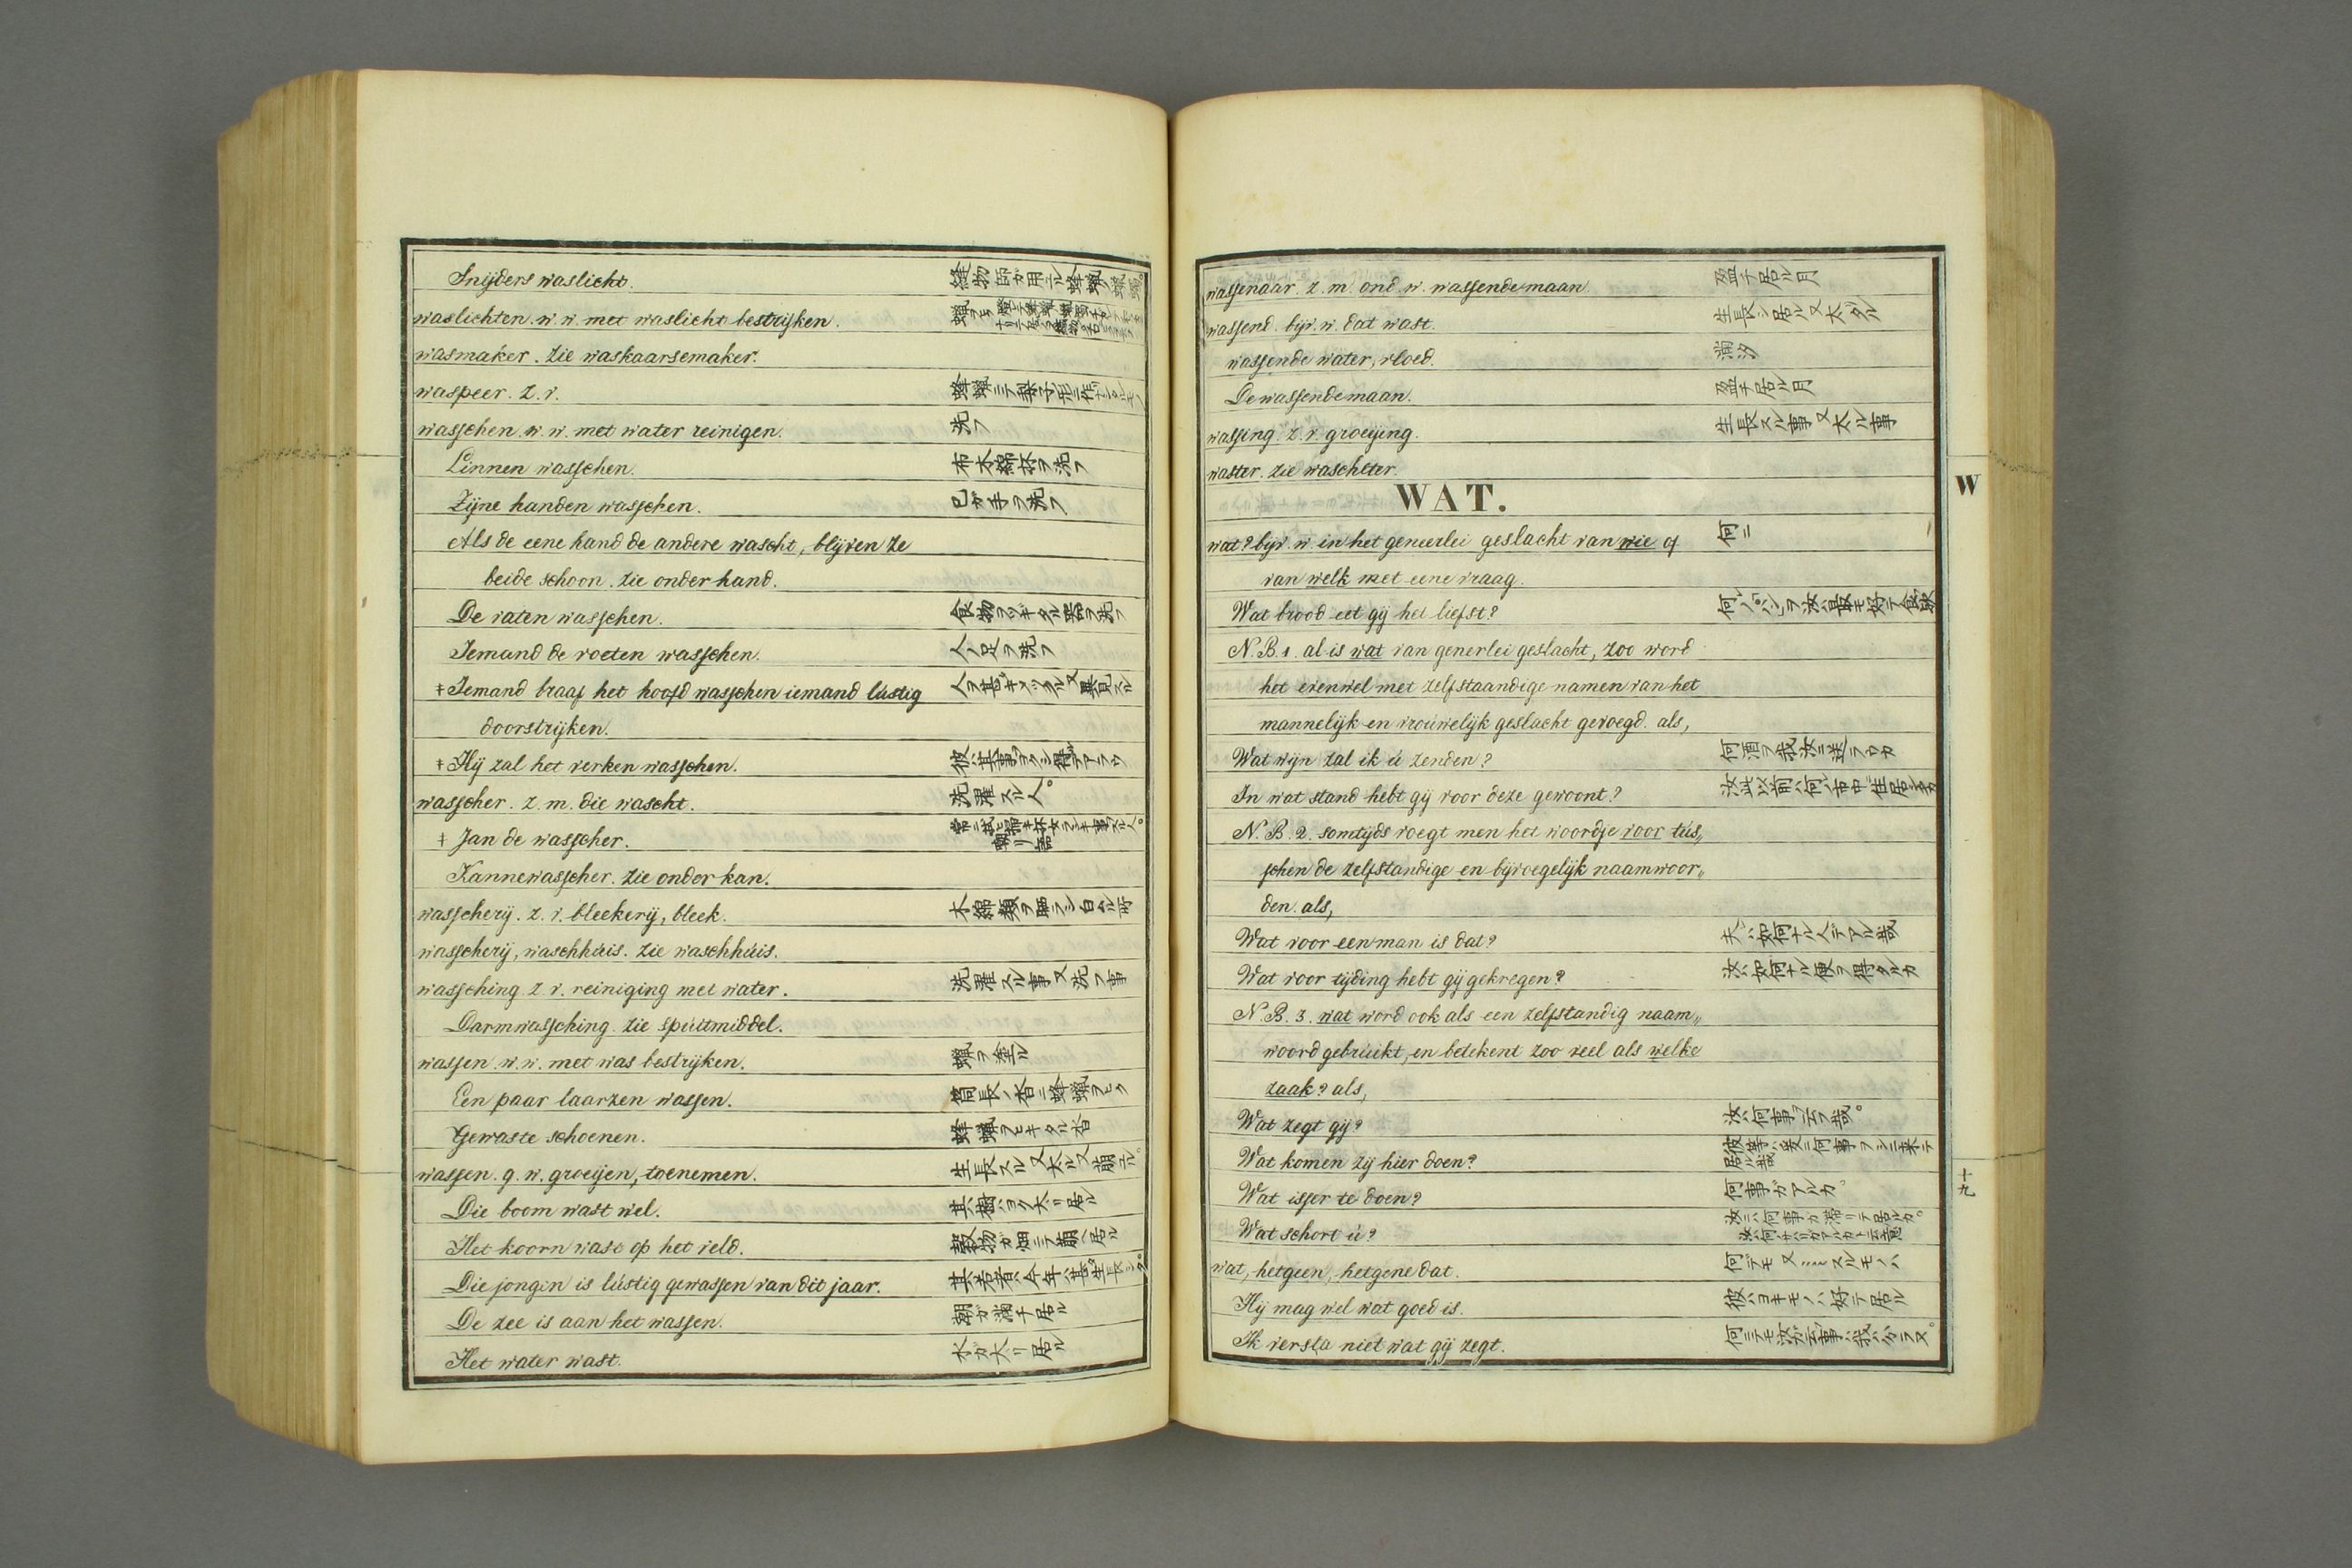 Snijders waslicht. 縫物師ガ用ル蜂蠟
waslichten. w. w. met waslicht bestrijken.
wasmaker. zie waskaarsemaker.
waspeer. z. v.
wasschen. w. w. met water reinigen. 洗フ
Linnen wasschen. 布木綿抔ヲ洗フ
Zijne handen wasschen. 己ガ手ヲ洗フ
Als de eene hand de andere wascht, blijven ze
beide schoon. zie onder hand.
De vaten wasschen.
Iemand de voeten wasschen. 人ノ足ヲ洗フ
‡ Iemand braaf het hoofd wasschen iemand lústig
doorstrijken.
‡ Hij zal het verken wasschen.
wasscher. z. m. die wascht. 洗濯スル人。
‡ Jan de wasscher.
Kannewasscher. zie onder kan.
wasscherij. z. v. bleekerij, bleek.
wasscherij, waschhúis. zie waschhúis.
wassching. z. v. reiniging met water. 洗濯スル事又洗フ事
Darmwassching. zie spúitmiddel.
wassen. w. w. met was bestrijken. 蠟ヲ塗ル
Een paar laarzen wassen. 筒長ノ沓ニ蜂蠟ヲヒク
Gewaste schoenen. 蜂蠟ヲヒキタル沓
wassen. g. w. groeijen, toenemen. 生長スル又太ル又崩ル。
Die boom wast wel. 其樹ハヨク太リ居ル
Het koorn wast op het veld.
Die jongen is lústig gewassen van dit jaar.
De zee is aan het wassen. 潮ガ満チ居ル
Het water wast. 水ガ太リ居ル
wassenaar. z. m. ond. w. wassende maan. 盈チ居ル月
wassend. bijv. w. dat wast. 生長シ居ル又太タル
wassende water, vloed. 満汐
De wassende maan. 盈チ居ル月
wassing. z. v. groeijing. 生長スル事又太ル事
waster. zie waschster.
WAT.
W
wat? bijv. w. in het generlei geslacht van wie of 何ニ
van welk met eene vraag.
Wat brood eet gij het liefst?
N. B. 1. al is wat van generlei geslacht, zoo word
het evenwel met zelfstaandige namen van het
mannelijk en vroúwelijk geslacht gevoegd. als,
Wat wijn zal ik ú zenden? 何酒ヲ我汝ニ送ラウカ
In wat stand hebt gij voor deze gewoont?
N. B. 2. somtijds voegt men het woordje voor tús„
schen de zelfstandige en bijvoegelijk naamwoor„
den. als,
Wat voor een man is dat? 夫ハ如何ナル人デアル哉
Wat voor tijding hebt gij gekregen? 汝ハ如何ナル便ヲ得タルカ
N. B. 3. wat word ook als een zelfstandig naam„
woord gebrúikt, en betekent zoo veel als welke
zaak? als,
Wat zegt gij? 汝ハ何事ヲ云フ哉。
Wat komen zij hier doen? 彼等ハ爰ニ何事ヲシニ来テ居ル哉
十九
Wat isser te doen? 何事ガアルカ。
Wat schort ú? 汝ニハ何事ガ滞リテ居ルカ。
wat, hetgeen, hetgene dat.
Hij mag wel wat goed is. 彼ハヨキモノハ好テ居ル
Ik versta niet wat gij zegt.